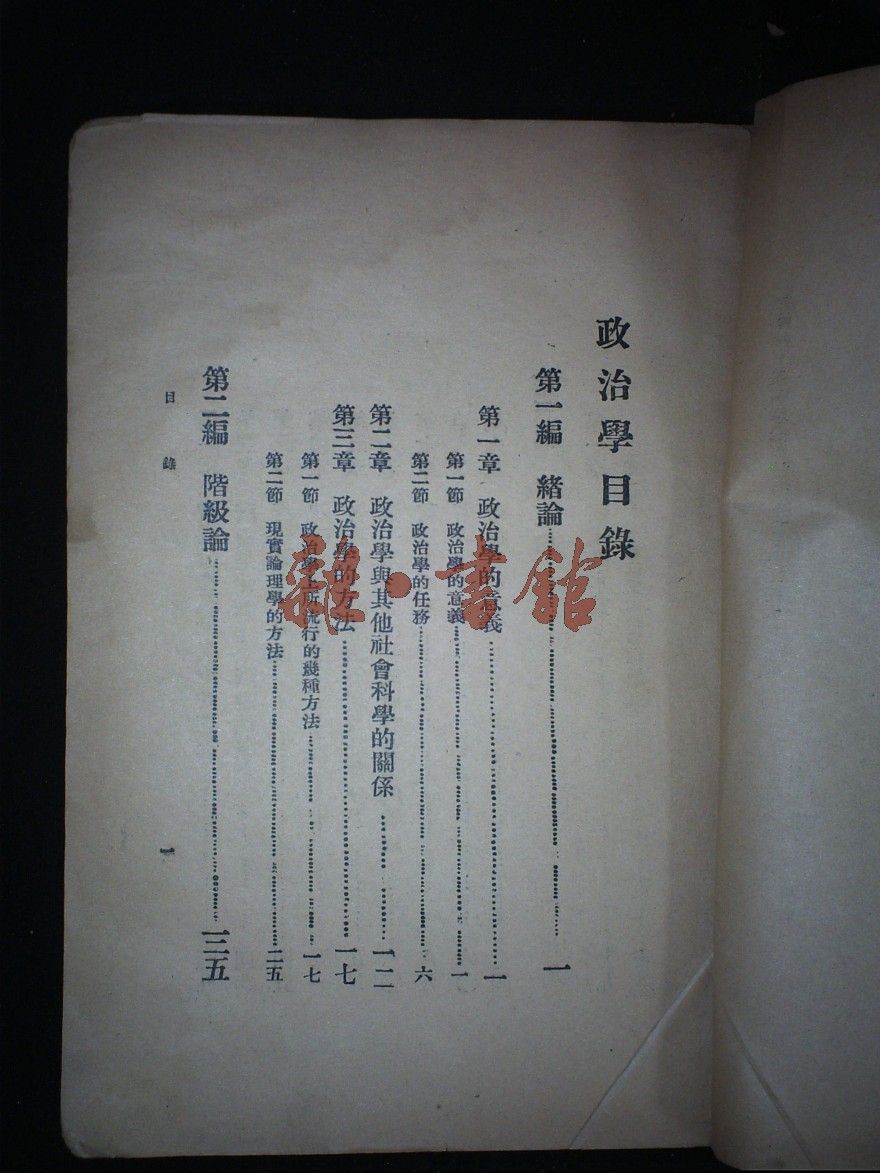 政治學目錄
第一編 緒論……一
第一章 政治學的意義……一
第一節 政治學的意義……一
第二節 政治學的任務……六
第二章 政治學與其他社會科學的關係……一二
第三章 政治學的方法……一七
第一節 政治學上所流行的幾種方法……一七
第二節 現實論理學的方法……二五
第二編 階級論……三五
目錄
一
雜·書館